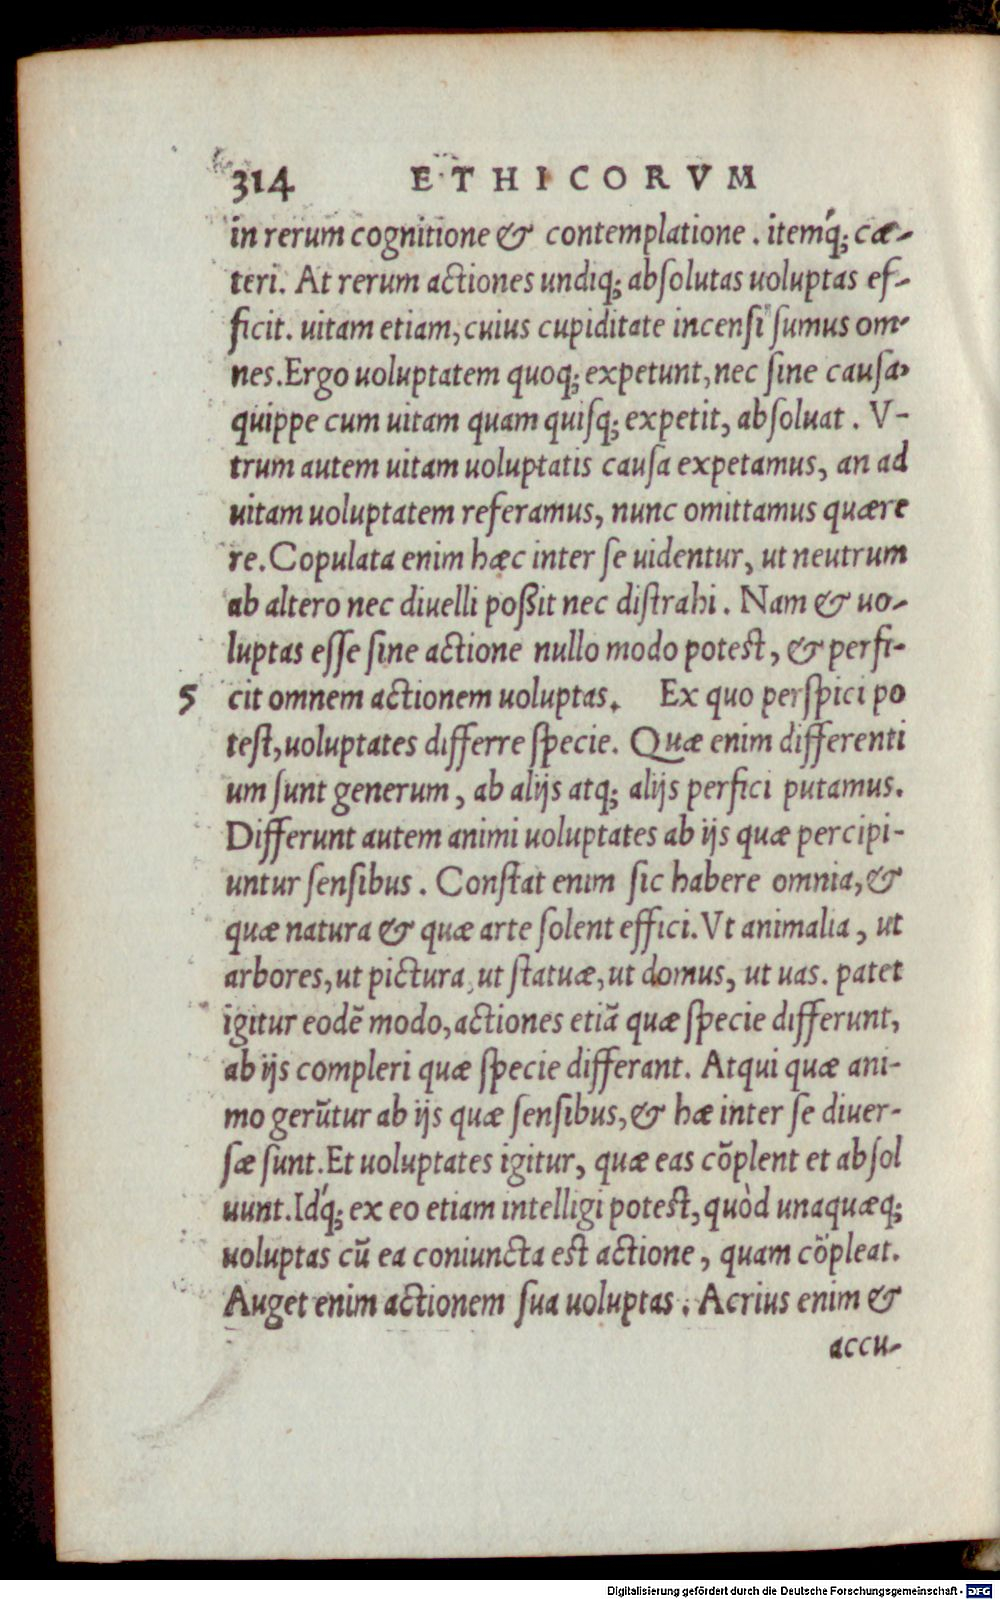 314 ETHICORVM
in rerum cognitione & contemplatione. itemq́; cæ-
teri. At rerum actiones undiq; absolutas uoluptas ef-
ficit. uitam etiam, cuius cupiditate incensi sumus om-
nes. Ergo uoluptatem quoq; expetunt, nec sine causa,
quippe cum uitam quam quisq; expetit, absoluat. V-
trum autem uitam uoluptatis causa expetamus, an ad
uitam uoluptatem referamus, nunc omittamus quære
re. Copulata enim hæc inter se uidentur, ut neutrum
ab altero nec diuelli poßit nec distrahi. Nam & uo-
luptas esse sine actione nullo modo potest, & perfi-
5 cit omnem actionem uoluptas. Ex quo perspici po
test, uoluptates differre specie. Quæ enim differenti
um sunt generum, ab alijs atq; alijs perfici putamus.
Differunt autem animi uoluptates ab ijs quæ percipi-
untur sensibus. Constat enim sic habere omnia, &
quæ natura & quæ arte solent effici. Vt animalia, ut
arbores, ut pictura, ut statuæ, ut domus, ut uas. patet
igitur eodē modo, actiones etiā quæ specie differunt,
ab ijs compleri quæ specie differant. Atqui quæ ani-
mo gerūtur ab ijs quæ sensibus, & hæ inter se diuer-
sæ sunt. Et uoluptates igitur, quæ eas cōplent et absol
uunt. Idq́; ex eo etiam intelligi potest, quòd unaquæq;
uoluptas cū ea coniuncta est actione, quam cōpleat.
Auget enim actionem sua uoluptas. Acrius enim &
accu-
Digitalisierung gefördert durch die Deutsche Forschungsgemeinschaft - DFG